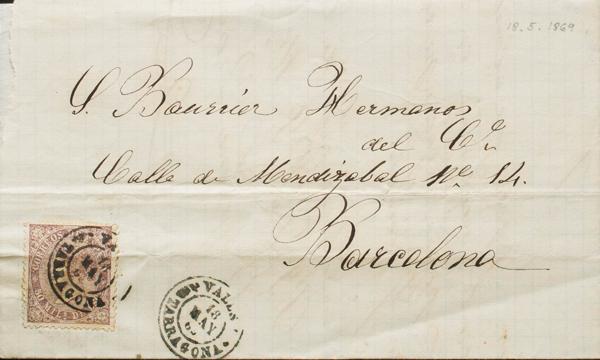 18.5.1869
S. Bourrier Hermanos
del Cº.
Calle de Mendizabal Nº 14.
Barcelona
CORREOS
TARRAGONA
MAY
VALLS
18
MAY
TARRAGONA